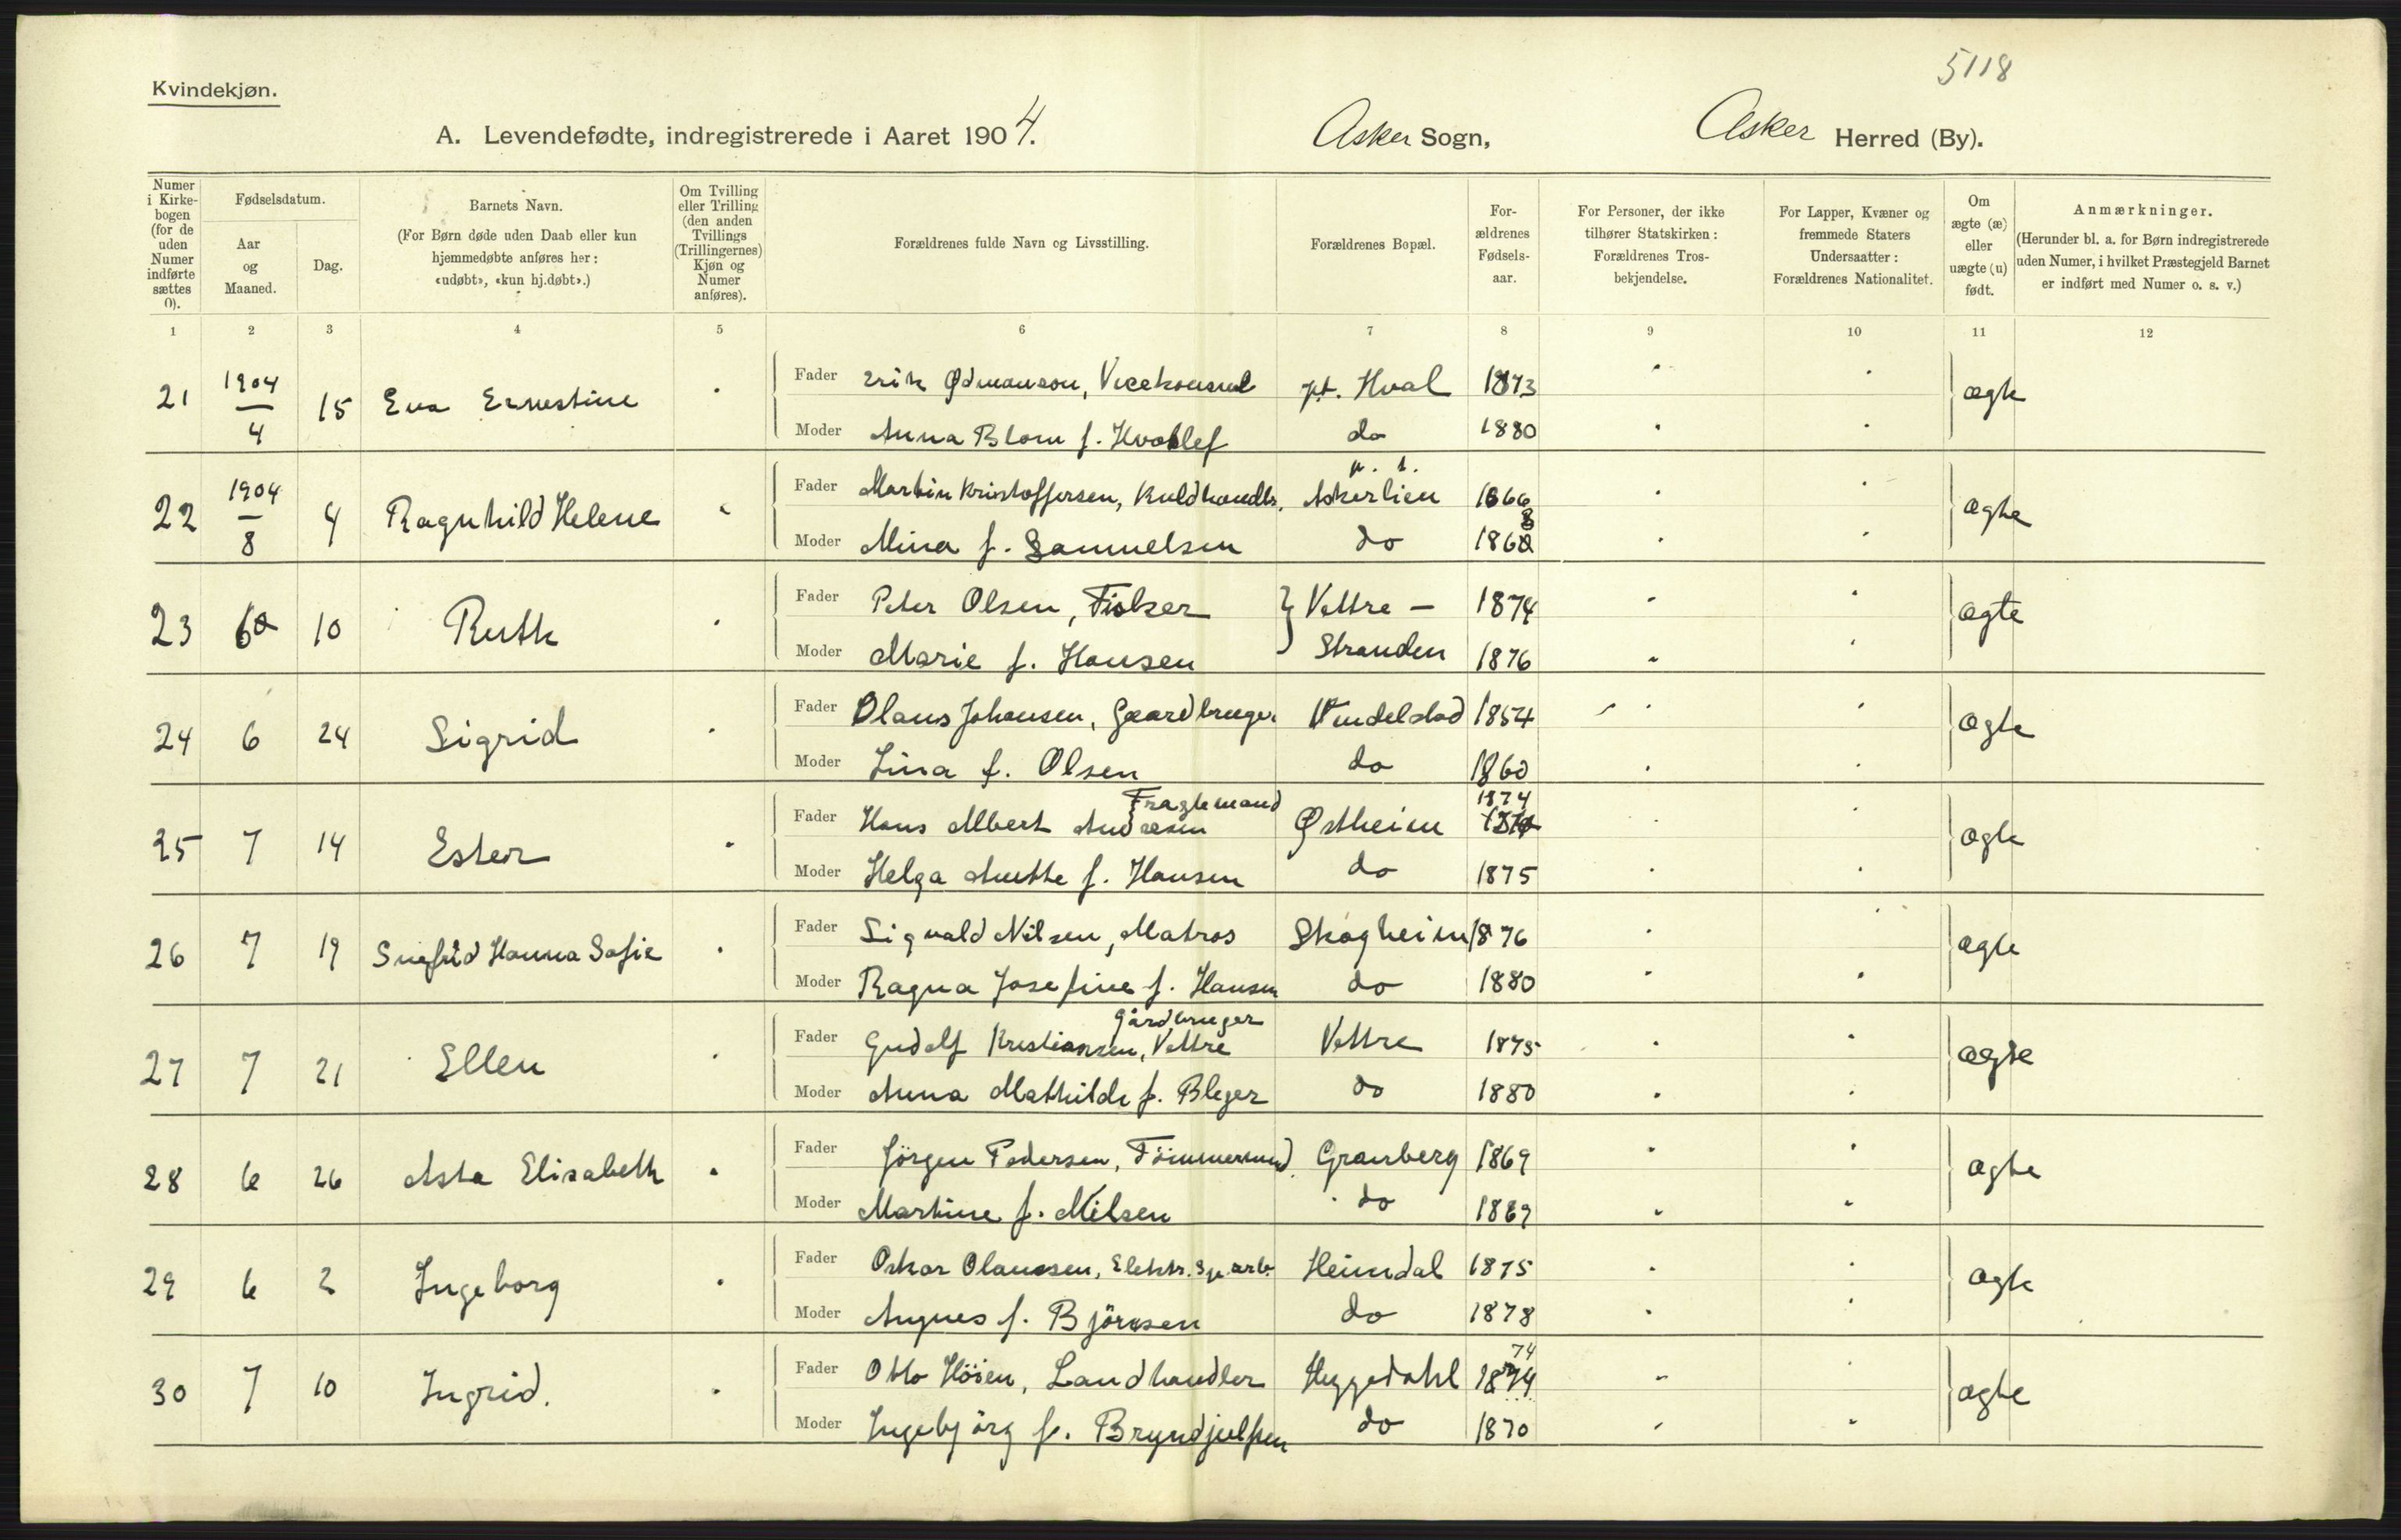 5118
Kvindekjøn.
A. Levendefødte, indregistrerede i Aaret 1904. Asker Sogn, Asker Herred (By).
Numer i Kirkebogen (for de uden Numer indførte sættes 0).
Fødselsdatum.
Aar og Maaned.
Dag.
Barnets Navn.
(For Børn døde uden Daab eller kun hjemmedøbte anføres her: «udøbt», «kun hj.døbt».)
Om Tvilling eller Trilling (den anden Tvillings (Trillingernes) Kjøn og Numer anføres).
Forældrenes fulde Navn og Livsstilling.
Forældrenes Bopæl.
For-ældrenes Fødsels-aar.
For Personer, der ikke tilhører Statskirken: Forældrenes Tros-bekjendelse.
For Lapper, Kvæner og fremmede Staters Undersaatter: Forældrenes Nationalitet.
Om ægte (æ) eller uægte (u) født.
Anmærkninger.
(Herunder bl. a. for Børn indregistrerede uden Numer, i hvilket Præstegjeld Barnet er indført med Numer o. s. v.)
1 2 3 4 5 6 7 8 9 10 11 12
21 1904/4 15 Eva Ernestine Fader Erik Ødmanson, Vicekonsul pt. Hval 1873 ægte
Moder Anna Blom f. Hvoslef do 1880
22 1904/8 4 Ragnhild Helene Fader Martin Kristoffersen, Kuldhandlr. p. t. Askerlien 1866 ægte
Moder Mina f. Samuelsen do 1868
23 6 10 Ruth Fader Peter Olsen, Fisker Vettre - 1874 ægte
Moder Marie f. Hansen Stranden 1876
24 6 24 Sigrid Fader Olaus Johansen, Gaardbruger Vendelstad 1854 ægte
Moder Lina f. Olsen do 1860
25 7 14 Ester Fader Hans Albert Andresen Fragtemand Østheim 1874 ægte
Moder Helga Anette f. Hansen do 1875
26 7 19 Snefrid Hanna Sofie Fader Sigvald Nilsen, Matros Skogheim 1876 ægte
Moder Ragna Josefine f. Hansen do 1880
27 7 21 Ellen Fader Gudolf Kristiansen, Vettre Gårdbruger Vettre 1875 ægte
Moder Anna Mathilde f. Bleger do 1880
28 6 26 Asta Elisabeth Fader Jörgen Pedersen, Tömmermand Granberg 1869 ægte
Moder Martine f. Nilsen do 1869
29 6 2 Ingeborg Fader Oskar Olaussen, Elektr. Sp. arb. Heimdal 1875 ægte
Moder Angnes f. Björnsen do 1878
30 7 10 Ingrid. Fader Otto Höien, Landhandler Heggedahl 1874 74 ægte
Moder Ingebjörg f. Bryndjulfsen do 1870